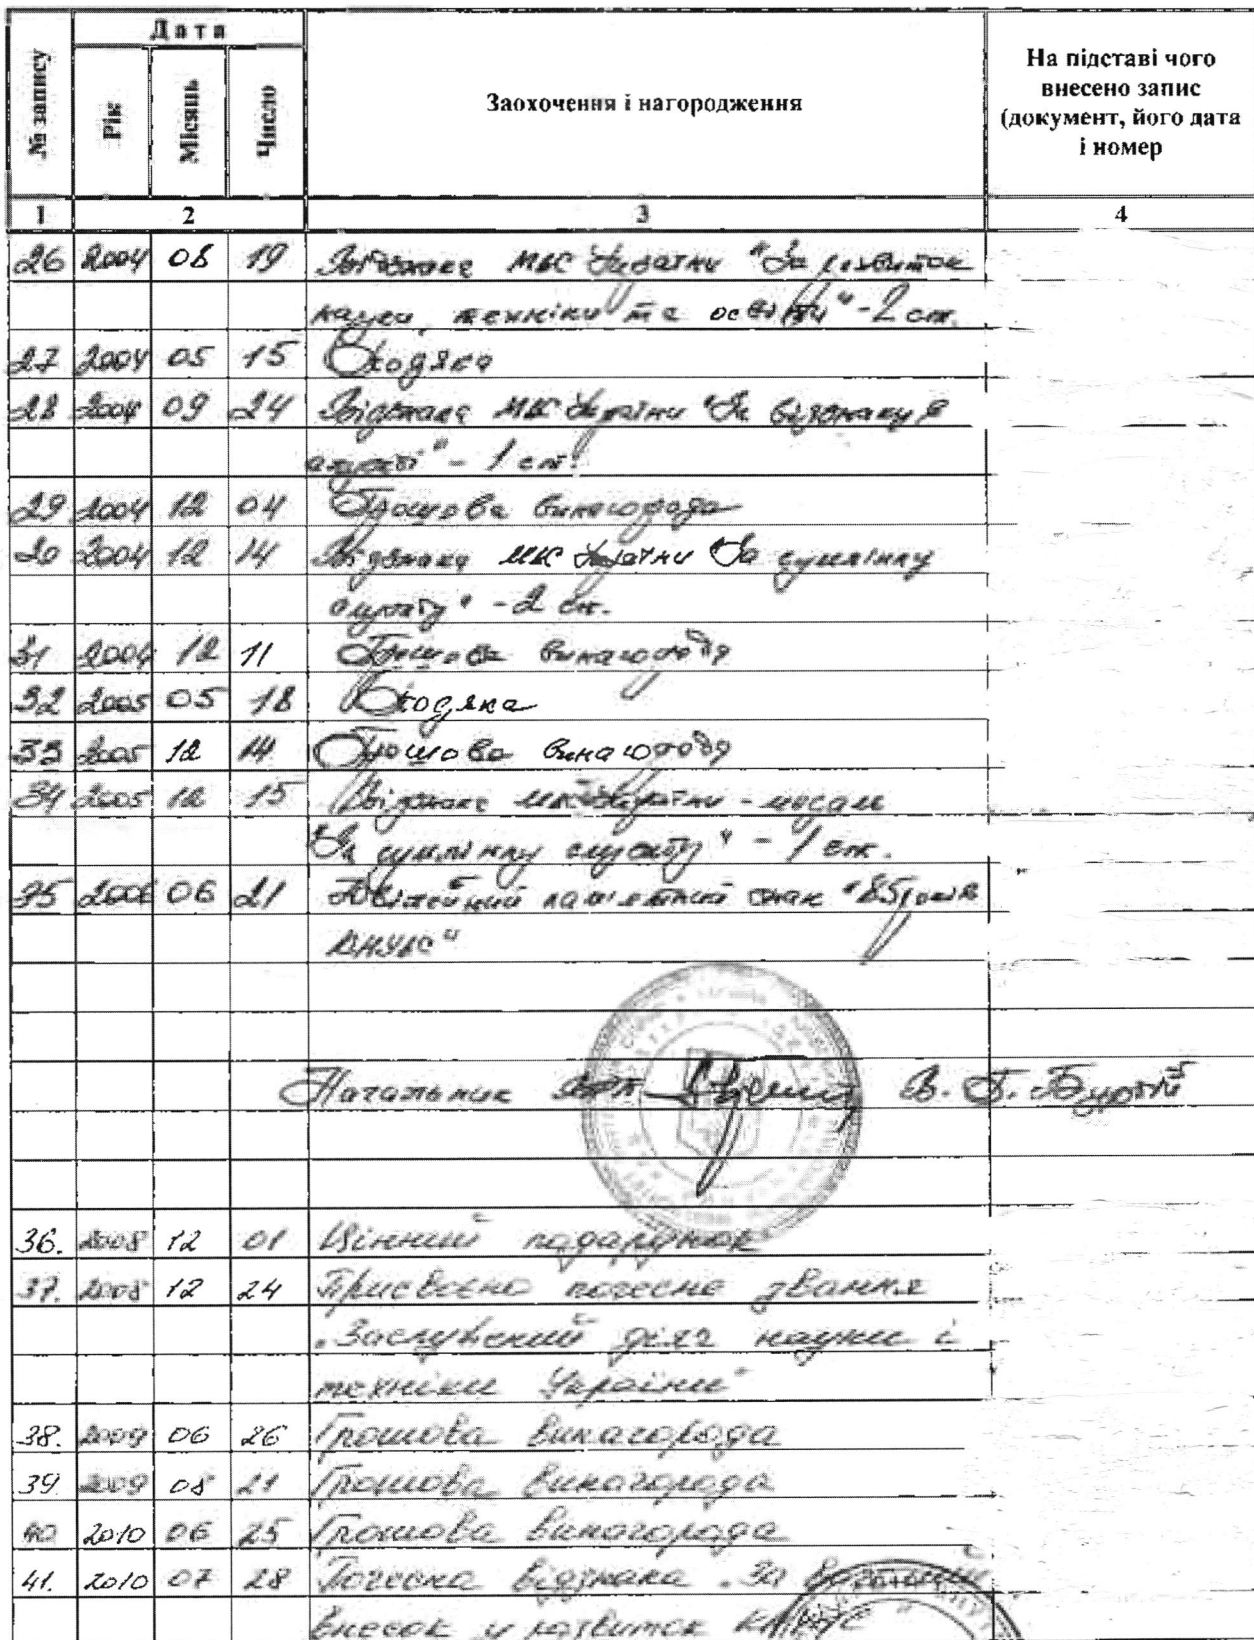 № запису
Дата
Рік
Місяць
Число
Заохочення і нагородження
На підставі чого
внесено запис
(документ, його дата
і номер
1 2 3 4
26 2004 08 19 Відзнака МВС України "За розвиток
науки, техніки та освіти" - 2 ст.
27 2004 05 15 Подяка
28 2004 09 24 Відзнака МВС України "За відзнаку в
службі" - 1 ст.
29 2004 12 04 Грошова винагорода
30 2004 12 14 Відзнака МВС України "За сумлінну
службу" - 2 ст.
31 2004 12 11 Грошова винагорода
32 2005 05 18 Подяка
33 2005 12 14 Грошова винагорода
34 2005 12 15 Відзнака МВС України - медаль
"За сумлінну службу" - 1 ст.
35 2006 06 21 Ювілейний пам'ятний знак "85 років
"
Начальник В. Г.
36. 2008 12 01 Цінний подарунок
37. 2008 12 24 Присвоєно почесне звання
"Заслужений діяч науки і
техніки України"
38. 2009 06 26 Грошова винагорода
39. 2009 08 21 Грошова винагорода
40 2010 06 25 Грошова винагорода
41. 2010 07 28 Почесна відзнака "За
внесок у розвиток